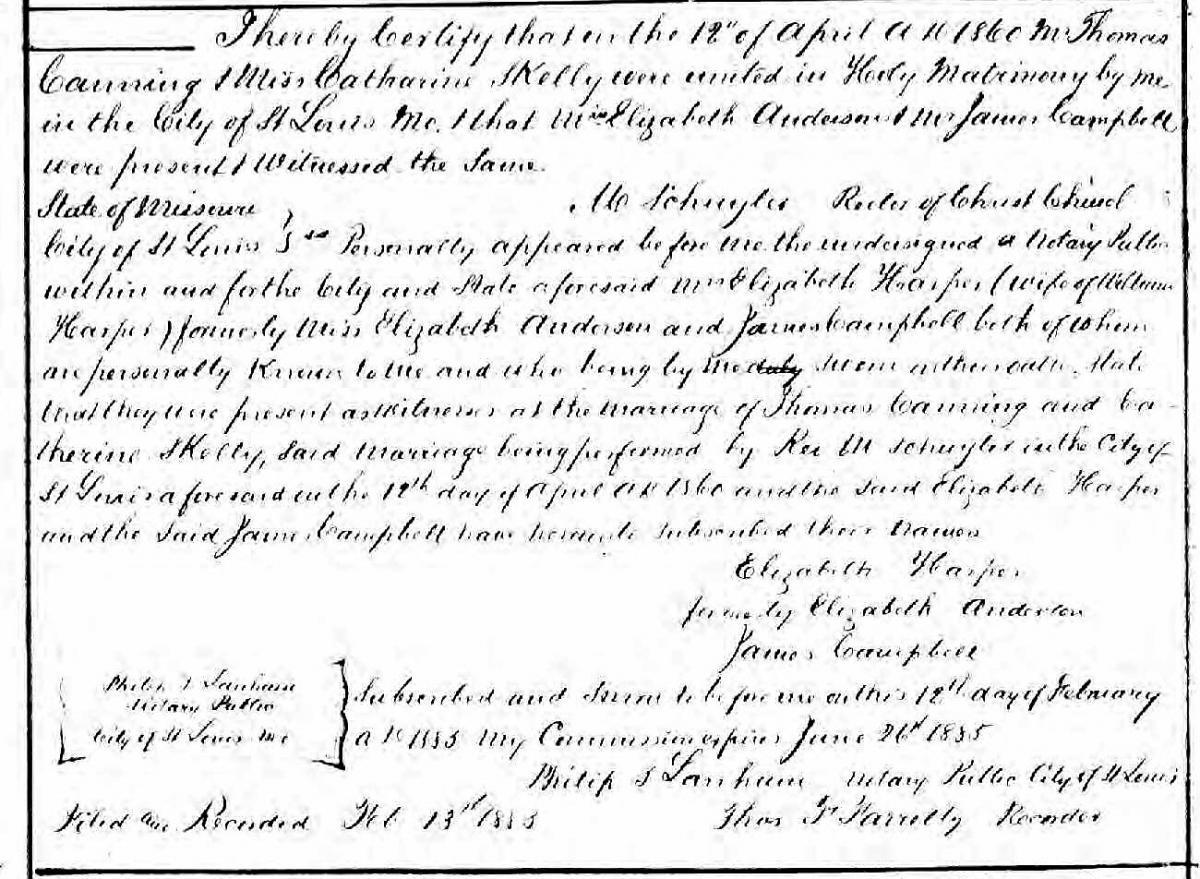 I hereby Certify that on the 12" of April A D 1860 Mr Thomas
Canning & Miss Catharine Skelly were united in Holy Matrimony by me
in the City of St Louis Mo. & that Miss Elizabeth Anderson & Mr James Campbell
were present & Witnessed the Same.
M Schuyler Rector of Christ Church
State of Missouri }
City of St Louis } ss Personally appeared before me the undersigned a Notary Public
within and for the City and State aforesaid Mrs Elizabeth Harper (wife of William
Harper) formerly Miss Elizabeth Anderson and James Campbell both of whom
are personally Known to me and who being by me duly sworn on their oaths State
that they were present as Witnesses at the marriage of Thomas Canning and Ca-
therine Skelly, Said Marriage being performed by Rev M Schuyler in the City of
St Louis aforesaid on the 12th day of April A D 1860 and the Said Elizabeth Harper
and the Said James Campbell have hereunto Subscribed their names
Elizabeth Harper
formerly Elizabeth Anderson
James Campbell
Philip S Lanham
Notary Public
City of St Louis Mo
Subscribed and Sworn to before me on this 12th day of February
A D 1885 My Commission expires June 26th 1885
Philip S Lanham Notary Public City of St Louis
Filed and Recorded Feb 13th 1885 Thos F Farrelly Recorder